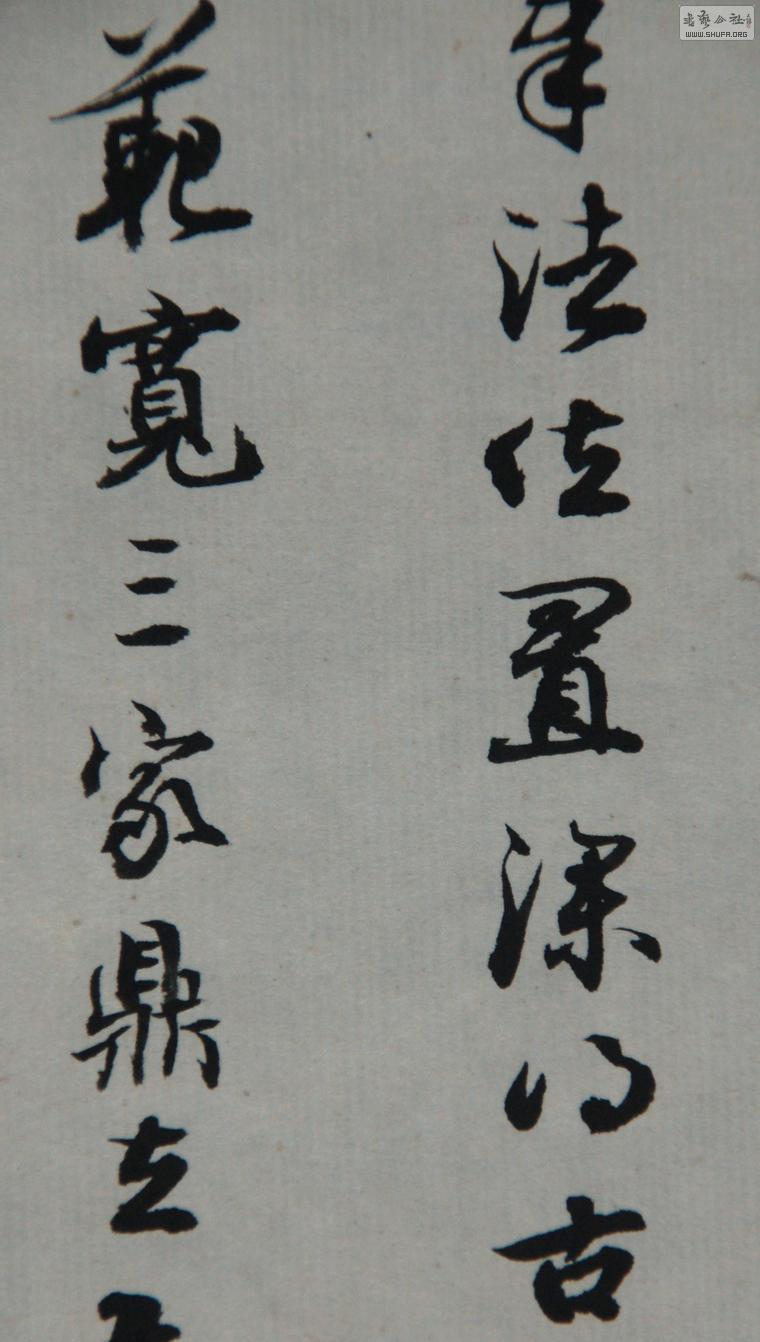 筆法位置深得古
範寬三家鼎立
書藝公社
WWW.SHUFA.ORG